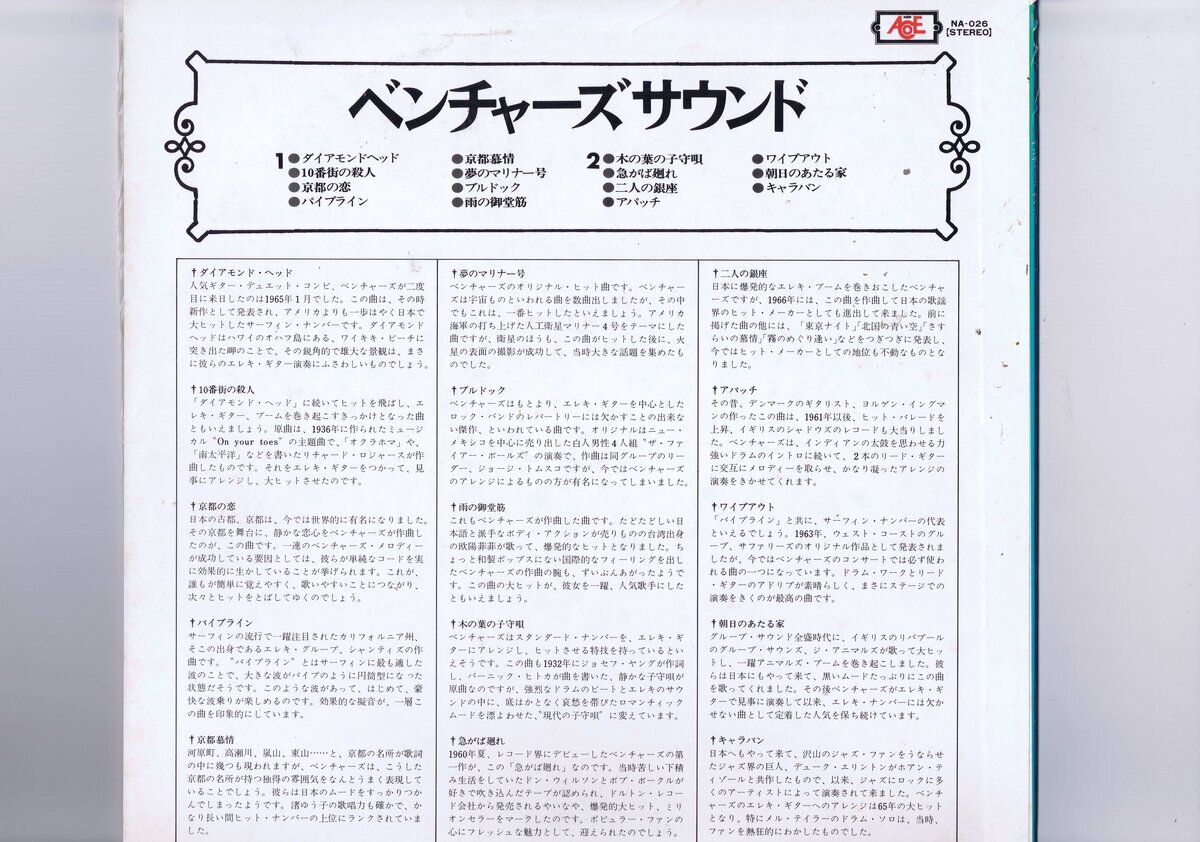 ACE
NA-026
[STEREO]
ベンチャーズサウンド
1●ダイアモンドヘッド
●10番街の殺人
●京都の恋
●パイプライン
●京都慕情
●夢のマリナー号
●ブルドック
●雨の御堂筋
2●木の葉の子守唄
●急がば廻れ
●二人の銀座
●アパッチ
●ワイプアウト
●朝日のあたる家
●キャラバン
†ダイアモンド・ヘッド
人気ギター・デュエット・コンビ、ベンチャーズが二度
目に来日したのは1965年1月でした。この曲は、その時
新作として発表され、アメリカよりも一歩はやく日本で
大ヒットしたサーフィン・ナンバーです。ダイアモンド
ヘッドはハワイのオハフ島にある、ワイキキ・ビーチに
突き出た岬のことで、その鋭角的で雄大な景観は、まさ
に彼らのエレキ・ギター演奏にふさわしいものでしょう。
†10番街の殺人
「ダイアモンド・ヘッド」に続いてヒットを飛ばし、エ
レキ・ギター、ブームを巻き起こすきっかけとなった曲
ともいえましょう。原曲は、1936年に作られたミュージ
カル〝On your toes〞の主題曲で、「オクラホマ」や、
「南太平洋」などを書いたリチャード・ロジャースが作
曲したものです。それをエレキ・ギターをつかって、見
事にアレンジし、大ヒットさせたのです。
†京都の恋
日本の古都、京都は、今では世界的に有名になりました。
その京都を舞台に、静かな恋心をベンチャーズが作曲し
たのが、この曲です。一連のベンチャーズ・メロディー
が成功している要因としては、彼らが単純なコードを実
に効果的に生かしていることが挙げられます。これが、
誰もが簡単に覚えやすく、歌いやすいことにつながり、
次々とヒットをとばしてゆくのでしょう。
†パイプライン
サーフィンの流行で一躍注目されたカリフォルニア州、
そこの出身であるエレキ・グループ、シャンティズの作
曲です。〝パイプライン〞とはサーフィンに最も適した
波のことで、大きな波がパイプのように円筒型になった
状態だそうです。このような波があって、はじめて、豪
快な波乗りが楽しめるのです。効果的な擬音が、一層こ
の曲を印象的にしています。
†京都慕情
河原町、高瀬川、嵐山、東山……と、京都の名所が歌詞
の中に幾つも現われますが、ベンチャーズは、こうした
京都の名所が持つ独得の雰囲気をなんとうまく表現して
いることでしょう。彼らは日本のムードをすっかりつか
んでしまったようです。渚ゆう子の歌唱力も確かで、か
なり長い間ヒット・ナンバーの上位にランクされていま
した。
†夢のマリナー号
ベンチャーズのオリジナル・ヒット曲です。ベンチャー
ズは宇宙ものといわれる曲を数曲出しましたが、その中
でもこれは、一番ヒットしたといえましょう。アメリカ
海軍の打ち上げた人工衛星マリナー4号をテーマにした
曲ですが、衛星のほうも、この曲がヒットした後に、火
星の表面の撮影が成功して、当時大きな話題を集めたも
のでした。
†ブルドック
ベンチャーズはもとより、エレキ・ギターを中心とした
ロック・バンドのレパートリーには欠かすことの出来な
い傑作、といわれている曲です。オリジナルはニュー・
メキシコを中心に売り出した白人男性4人組〝ザ・ファ
イアー・ボールズ〞の演奏で、作曲は同グループのリー
ダー、ジョージ・トムスコですが、今ではベンチャーズ
のアレンジによるものの方が有名になってしまいました。
†雨の御堂筋
これもベンチャーズが作曲した曲です。たどたどしい日
本語と派手なボディ・アクションが売りものの台湾出身
の欧陽菲菲が歌って、爆発的なヒットとなりました。ち
ょっと和製ポップスにない国際的なフィーリングを出し
たベンチャーズの作曲の腕も、ずいぶんあがったようで
す。この曲の大ヒットが、彼女を一躍、人気歌手にした
ともいえましょう。
†木の葉の子守唄
ベンチャーズはスタンダード・ナンバーを、エレキ・ギ
ターにアレンジし、ヒットさせる特技を持っているとい
えそうです。この曲も1932年にジョセフ・ヤングが作詞
し、バーニック・ヒトカが曲を書いた、静かな子守唄が
原曲なのですが、強烈なドラムのビートとエレキのサウ
ンドの中に、底はかとなく哀愁を帯びたロマンティック
ムードを漂よわせた、〝現代の子守唄〞に変えています。
†急がば廻れ
1960年夏、レコード界にデビューしたベンチャーズの第
一作が、この「急がば廻れ」なのです。当時苦しい下積
み生活をしていたドン・ウィルソンとボブ・ボーグルが
好きで吹き込んだテープが認められ、ドルトン・レコー
ド会社から発売されるやいなや、爆発的大ヒット、ミリ
オンセラーをマークしたのです。ポピュラー・ファンの
心にフレッシュな魅力として、迎えられたのでしょう。
†二人の銀座
日本に爆発的なエレキ・ブームを巻きおこしたベンチャ
ーズですが、1966年には、この曲を作曲して日本の歌謡
界のヒット・メーカーとしても進出して来ました。前に
掲げた曲の他には、「東京ナイト」「北国の青い空」「さす
らいの慕情」「霧のめぐり逢い」などをつぎつぎに発表し、
今ではヒット・メーカーとしての地位も不動なものとな
りました。
†アパッチ
その昔、デンマークのギタリスト、ヨルゲン・イングマ
ンの作ったこの曲は、1961年以後、ヒット・パレードを
上昇、イギリスのシャドウズのレコードも大当りしまし
た。ベンチャーズは、インディアンの太鼓を思わせる力
強いドラムのイントロに続いて、2本のリード・ギター
に交互にメロディーを取らせ、かなり凝ったアレンジの
演奏をきかせてくれます。
†ワイプアウト
「パイプライン」と共に、サーフィン・ナンバーの代表
といえるでしょう。1963年、ウェスト・コーストのグル
ープ、サファリーズのオリジナル作品として発表されま
したが、今ではベンチャーズのコンサートでは必ず使わ
れる曲の一つになっています。ドラム・ワークとリード
・ギターのアドリブが素晴らしく、まさにステージでの
演奏をきくのが最高の曲です。
†朝日のあたる家
グループ・サウンド全盛時代に、イギリスのリバプール
のグループ・サウンズ、ジ・アニマルズが歌って大ヒッ
トし、一躍アニマルズ・ブームを巻き起こしました。彼
らは日本にもやって来て、黒いムードたっぷりにこの曲
を歌ってくれました。その後ベンチャーズがエレキ・ギ
ターで見事に演奏して以来、エレキ・ナンバーには欠か
せない曲として定着した人気を保ち続けています。
†キャラバン
日本へもやって来て、沢山のジャズ・ファンをうならせ
たジャズ界の巨人、デューク・エリントンがホアン・テ
ィゾールと共作したもので、以来、ジャズにロックに多
くのアーティストによって演奏されて来ました。ベンチャ
ーズのエレキ・ギターへのアレンジは65年の大ヒット
となり、特にメル・テイラーのドラム・ソロは、当時、
ファンを熱狂的にわかしたものでした。